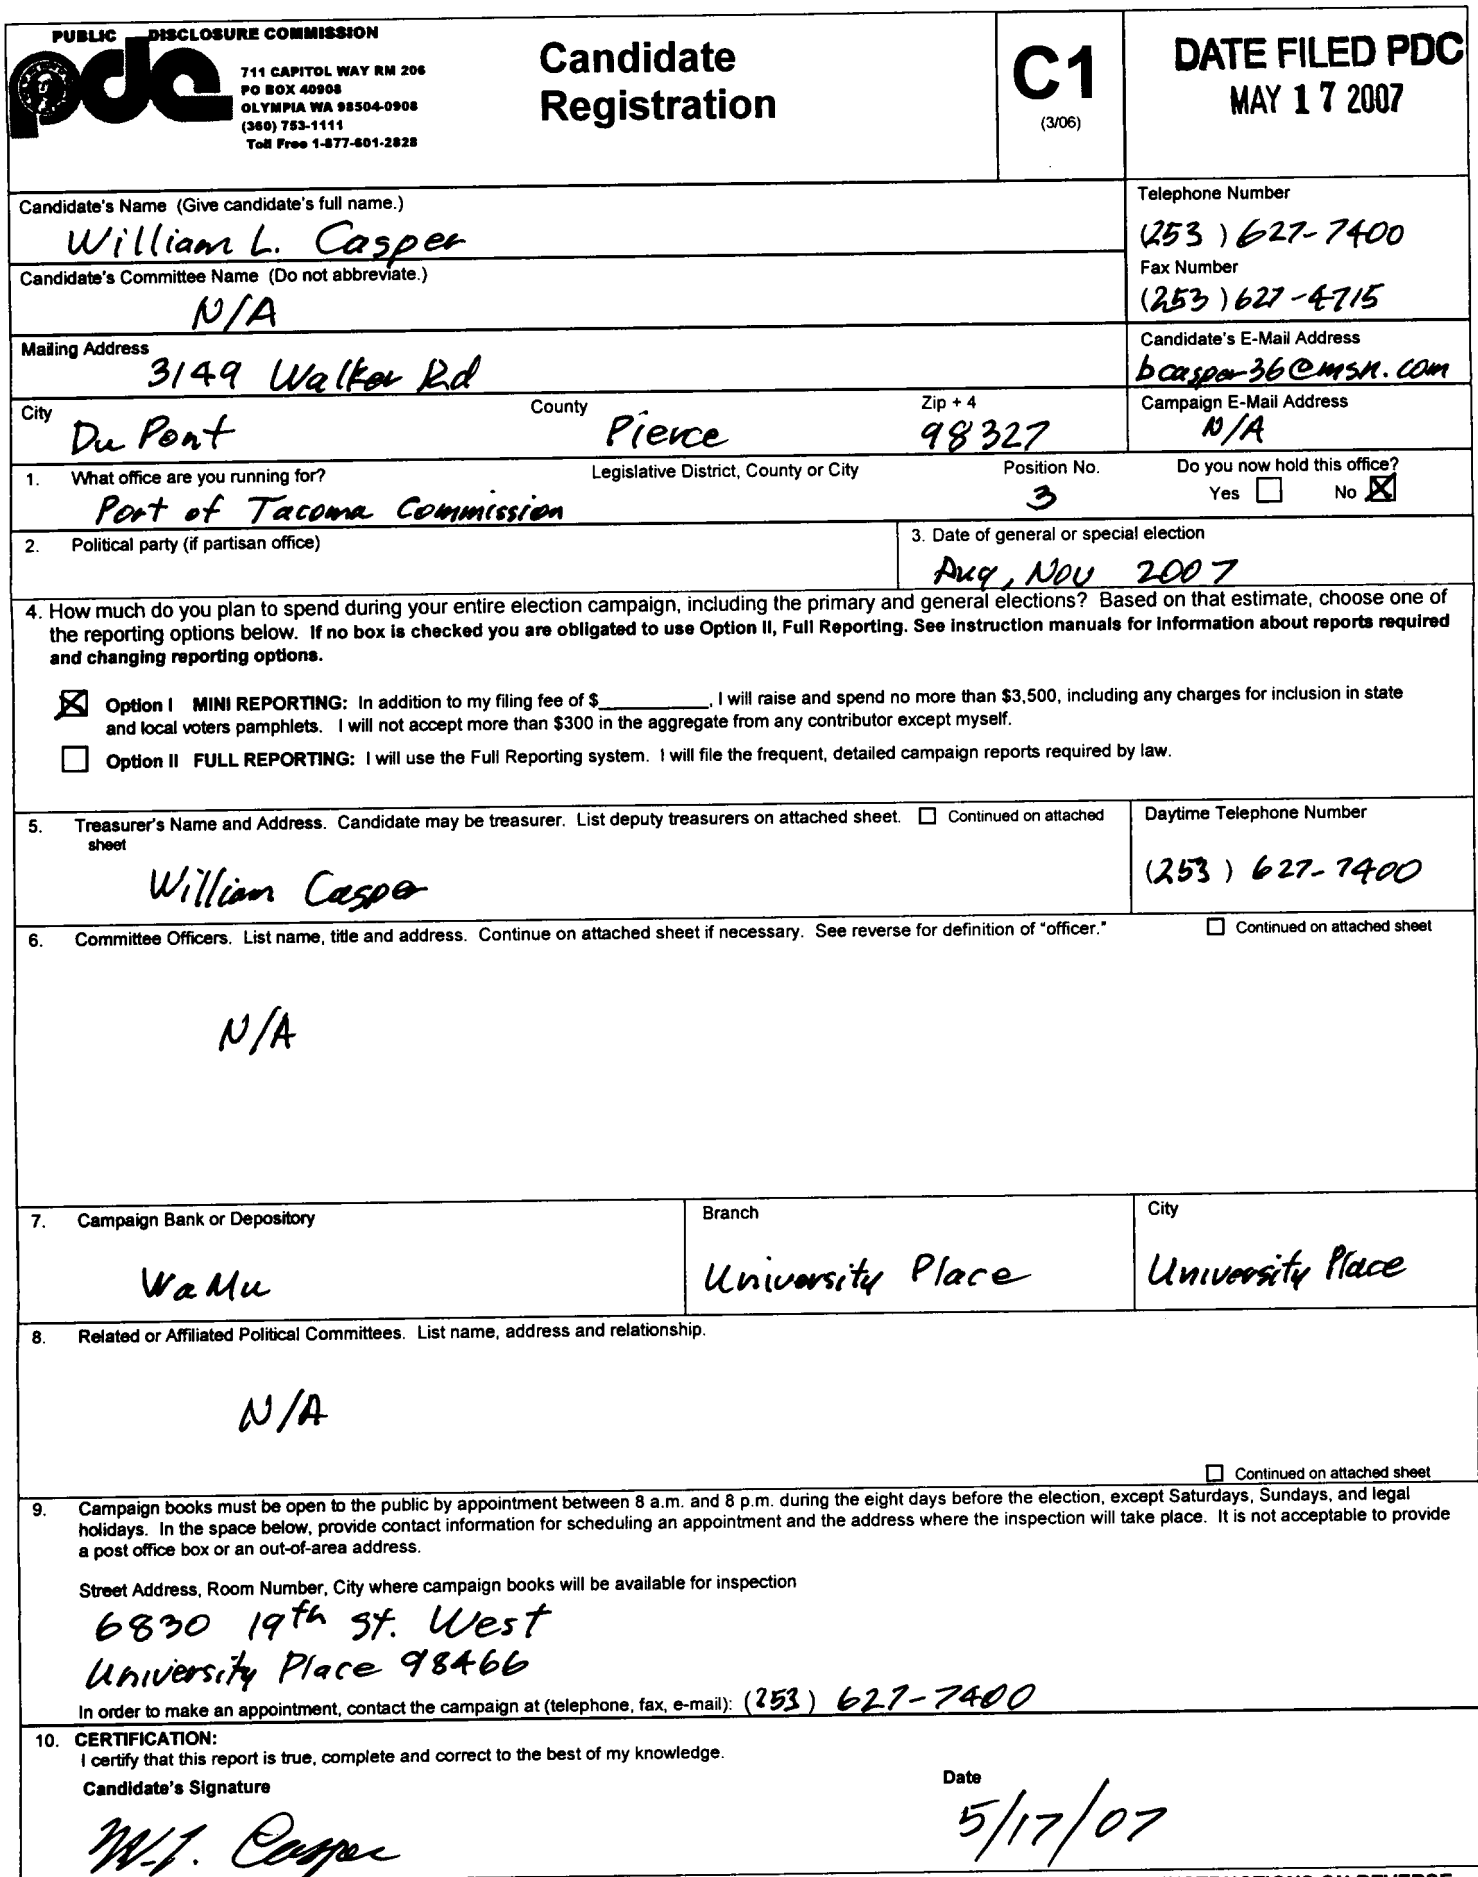 PUBLIC DISCLOSURE COMMISSION
pdc
711 CAPITOL WAY RM 206
PO BOX 40908
OLYMPIA WA 98504-0908
(360) 753-1111
Toll Free 1-877-601-2828
Candidate
Registration
C1
(3/06)
DATE FILED PDC
MAY 17 2007
Candidate's Name (Give candidate's full name.)
William L. Casper
Telephone Number
(253) 627-7400
Candidate's Committee Name (Do not abbreviate.)
N/A
Fax Number
(253) 627-4715
Mailing Address
3149 Walker Rd
Candidate's E-Mail Address
bcasper36@msn.com
City County Zip + 4
Du Pont Pierce 98327
Campaign E-Mail Address
N/A
1. What office are you running for? Legislative District, County or City Position No. Do you now hold this office?
Port of Tacoma Commission 3 Yes No
2. Political party (if partisan office)
3. Date of general or special election
Aug, Nov 2007
4. How much do you plan to spend during your entire election campaign, including the primary and general elections? Based on that estimate, choose one of
the reporting options below. If no box is checked you are obligated to use Option II, Full Reporting. See instruction manuals for information about reports required
and changing reporting options.
Option I MINI REPORTING: In addition to my filing fee of $__________, I will raise and spend no more than $3,500, including any charges for inclusion in state
and local voters pamphlets. I will not accept more than $300 in the aggregate from any contributor except myself.
Option II FULL REPORTING: I will use the Full Reporting system. I will file the frequent, detailed campaign reports required by law.
5. Treasurer's Name and Address. Candidate may be treasurer. List deputy treasurers on attached sheet. Continued on attached
sheet
William Casper
Daytime Telephone Number
(253) 627-7400
6. Committee Officers. List name, title and address. Continue on attached sheet if necessary. See reverse for definition of "officer." Continued on attached sheet
N/A
7. Campaign Bank or Depository Branch City
WaMu University Place University Place
8. Related or Affiliated Political Committees. List name, address and relationship.
N/A
Continued on attached sheet
9. Campaign books must be open to the public by appointment between 8 a.m. and 8 p.m. during the eight days before the election, except Saturdays, Sundays, and legal
holidays. In the space below, provide contact information for scheduling an appointment and the address where the inspection will take place. It is not acceptable to provide
a post office box or an out-of-area address.
Street Address, Room Number, City where campaign books will be available for inspection
6830 19th St. West
University Place 98466
In order to make an appointment, contact the campaign at (telephone, fax, e-mail): (253) 627-7400
10. CERTIFICATION:
I certify that this report is true, complete and correct to the best of my knowledge.
Candidate's Signature Date
W.L. Casper 5/17/07